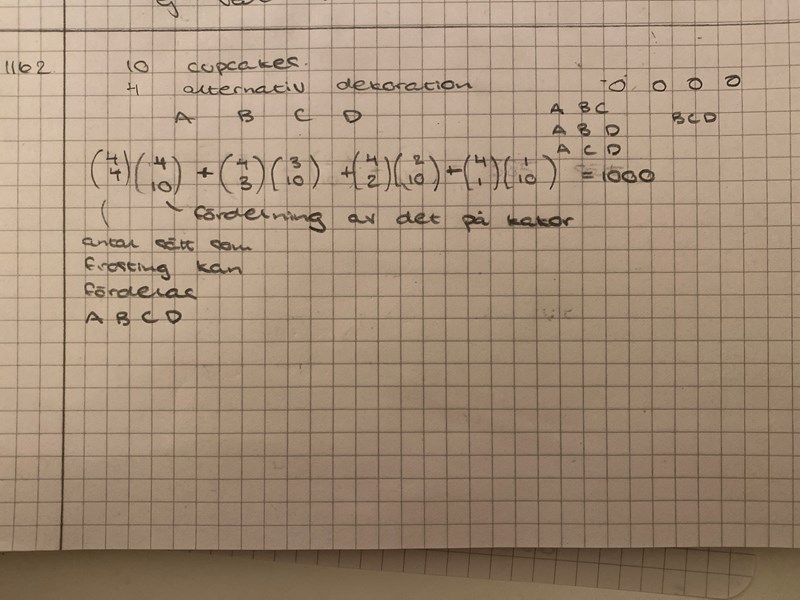 1162 10 cupcakes.
4 alternativ dekoration
A B C D
0 0 0 0
A B C
A B D
A C D
B C D
(4 4)(4 10) + (4 3)(3 10) + (4 2)(2 10) + (4 1)(1 10) = 1000
fördelning av det på kakor
antal sätt som
frosting kan
förderas
A B C D